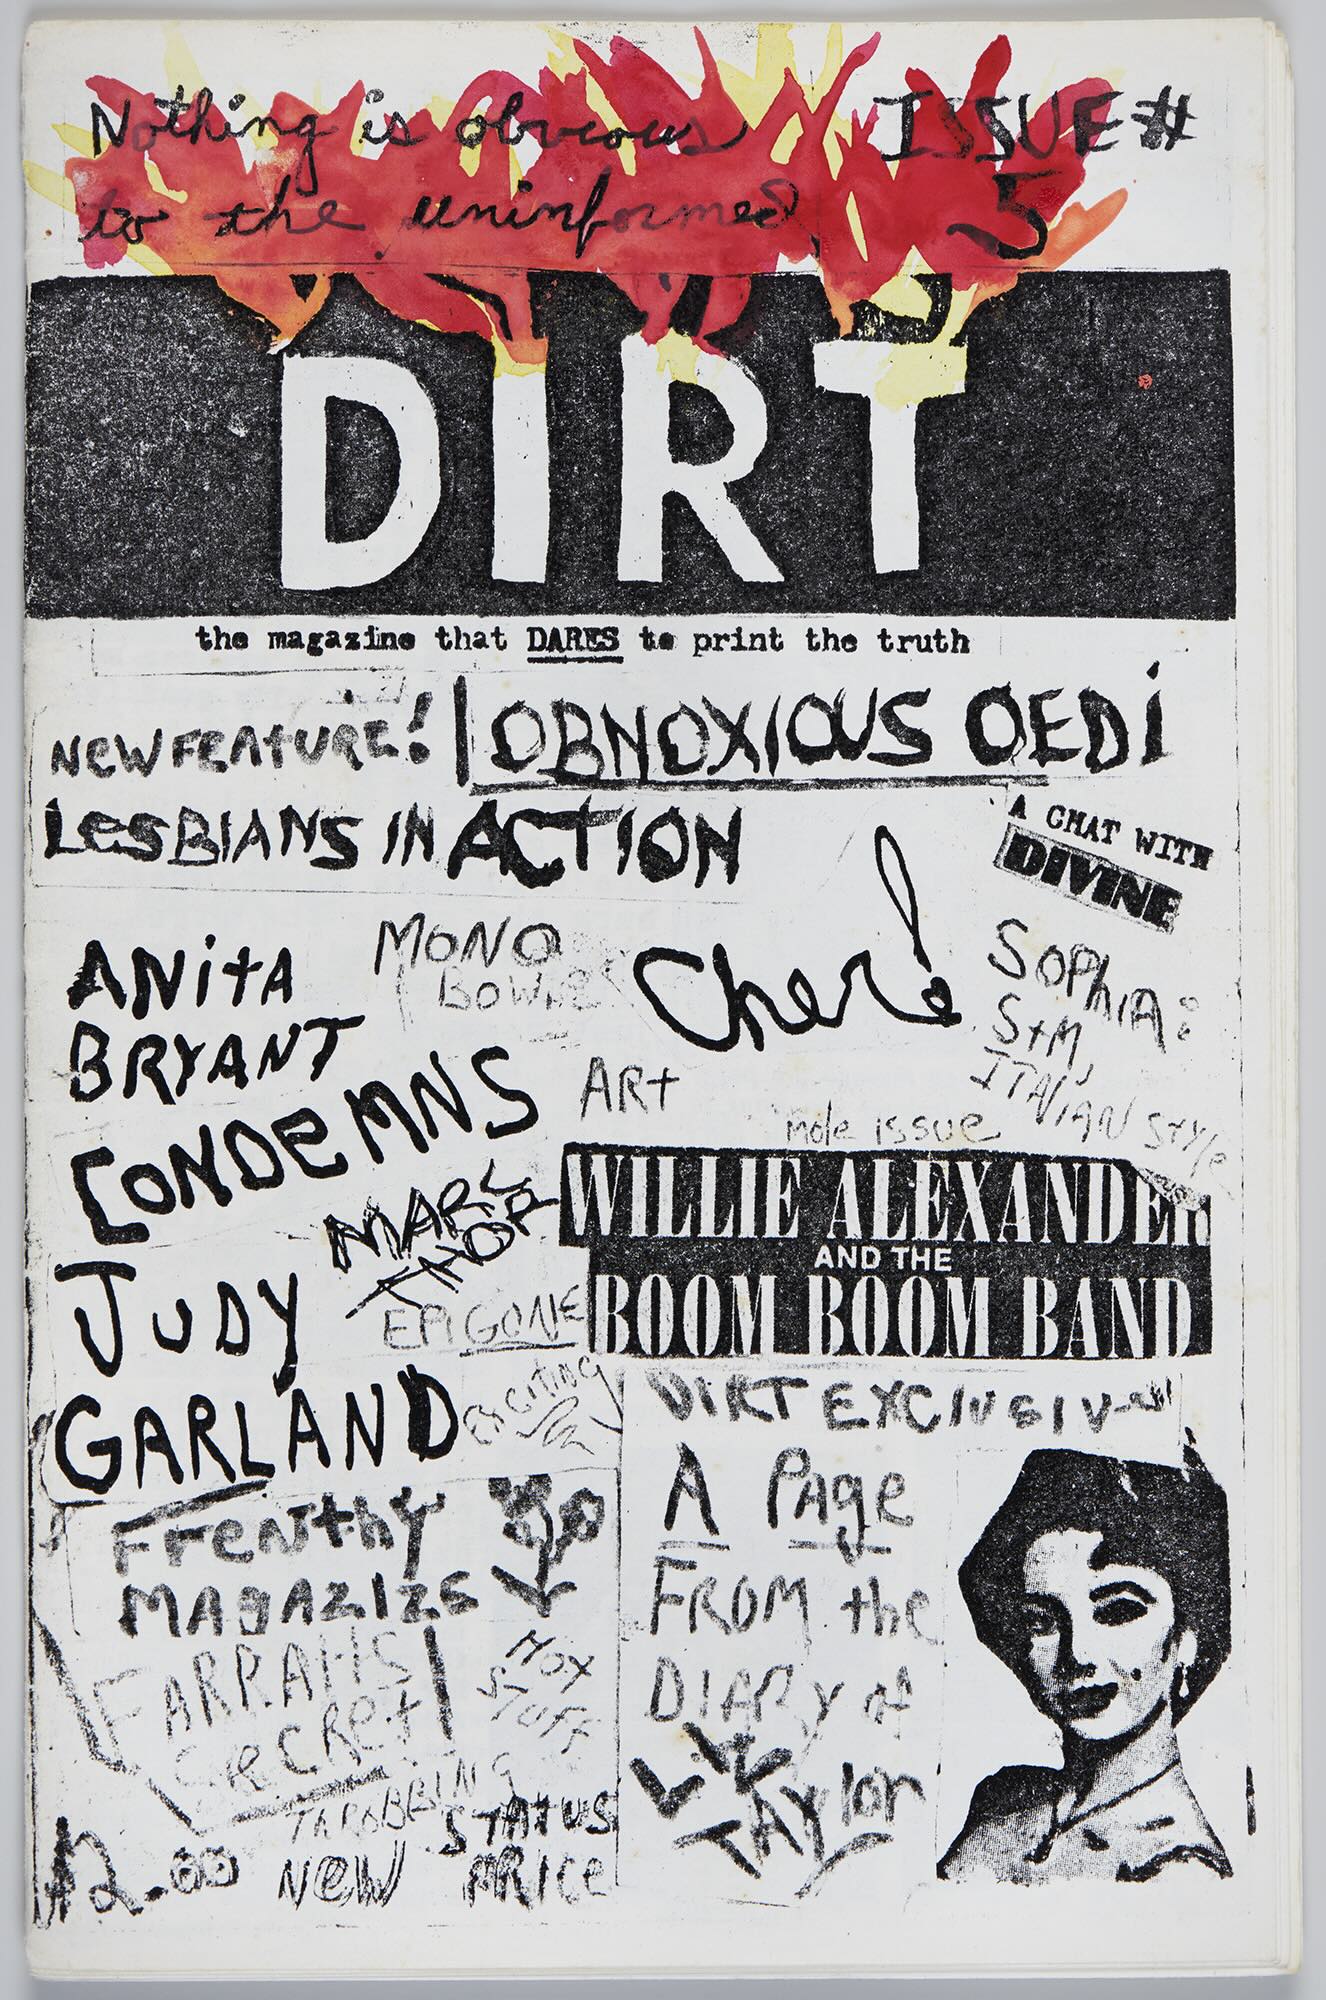 Nothing is obvious
to the uninformed
ISSUE #
5
DIRT
the magazine that DARES to print the truth
NEW FEATURE!
OBNOXIOUS OEDI
LESBIANS IN ACTION
A CHAT WITH
DIVINE
ANITA
BRYANT
CONDEMNS
JUDY
GARLAND
MONO
BOWIE
Cher!
SOPHIA:
S+M,
ITALIAN STYLE
ART
mole issue
WILLIE ALEXANDER
AND THE
BOOM BOOM BAND
MARLO
THOR
EPIGONE
EXCITING
DIRT EXCLUSIVE
A PAge
FROM the
DIARY of
LIZ
TAYlor
FFENthY
MAgAZIZE
FARRAHS
SECRET
HOT
STUFF
THROBBING
STATUS
$2.00
NEW
PRICE